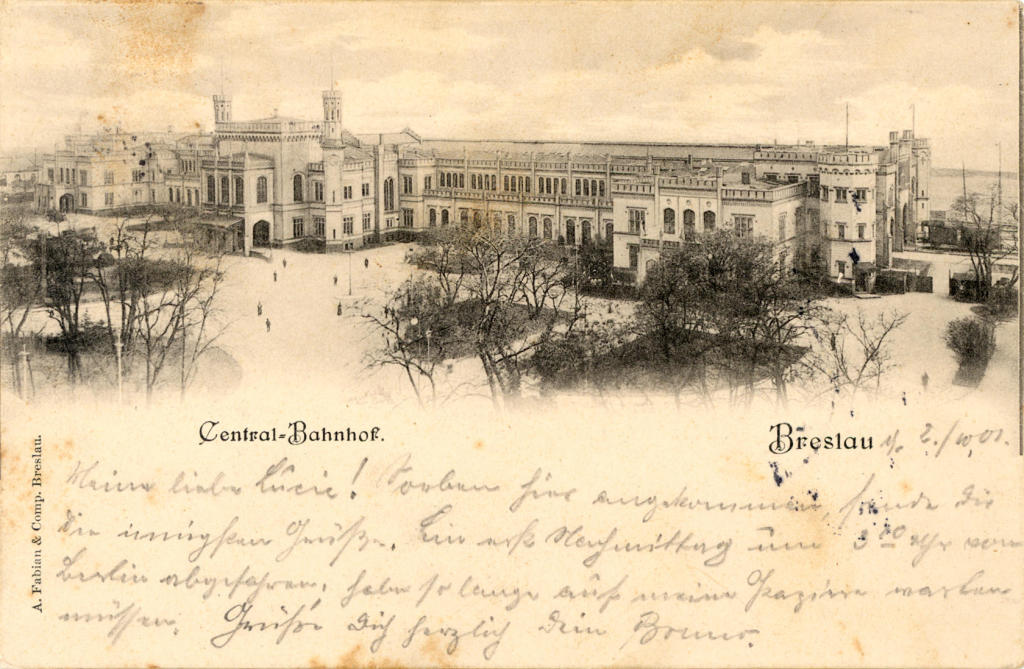 Central-Bahnhof.
Breslau 2./10.01.
A. Fabian & Comp. Breslau.
Meine liebe Lucie! Soeben hier angekommen, sende dir
die innigsten Grüße. Bin erst Nachmittag um 3 00 Uhr von
Berlin abgefahren, habe so lange auf meine Papiere warten
müssen. Grüße Dich herzlich Dein Bruno.